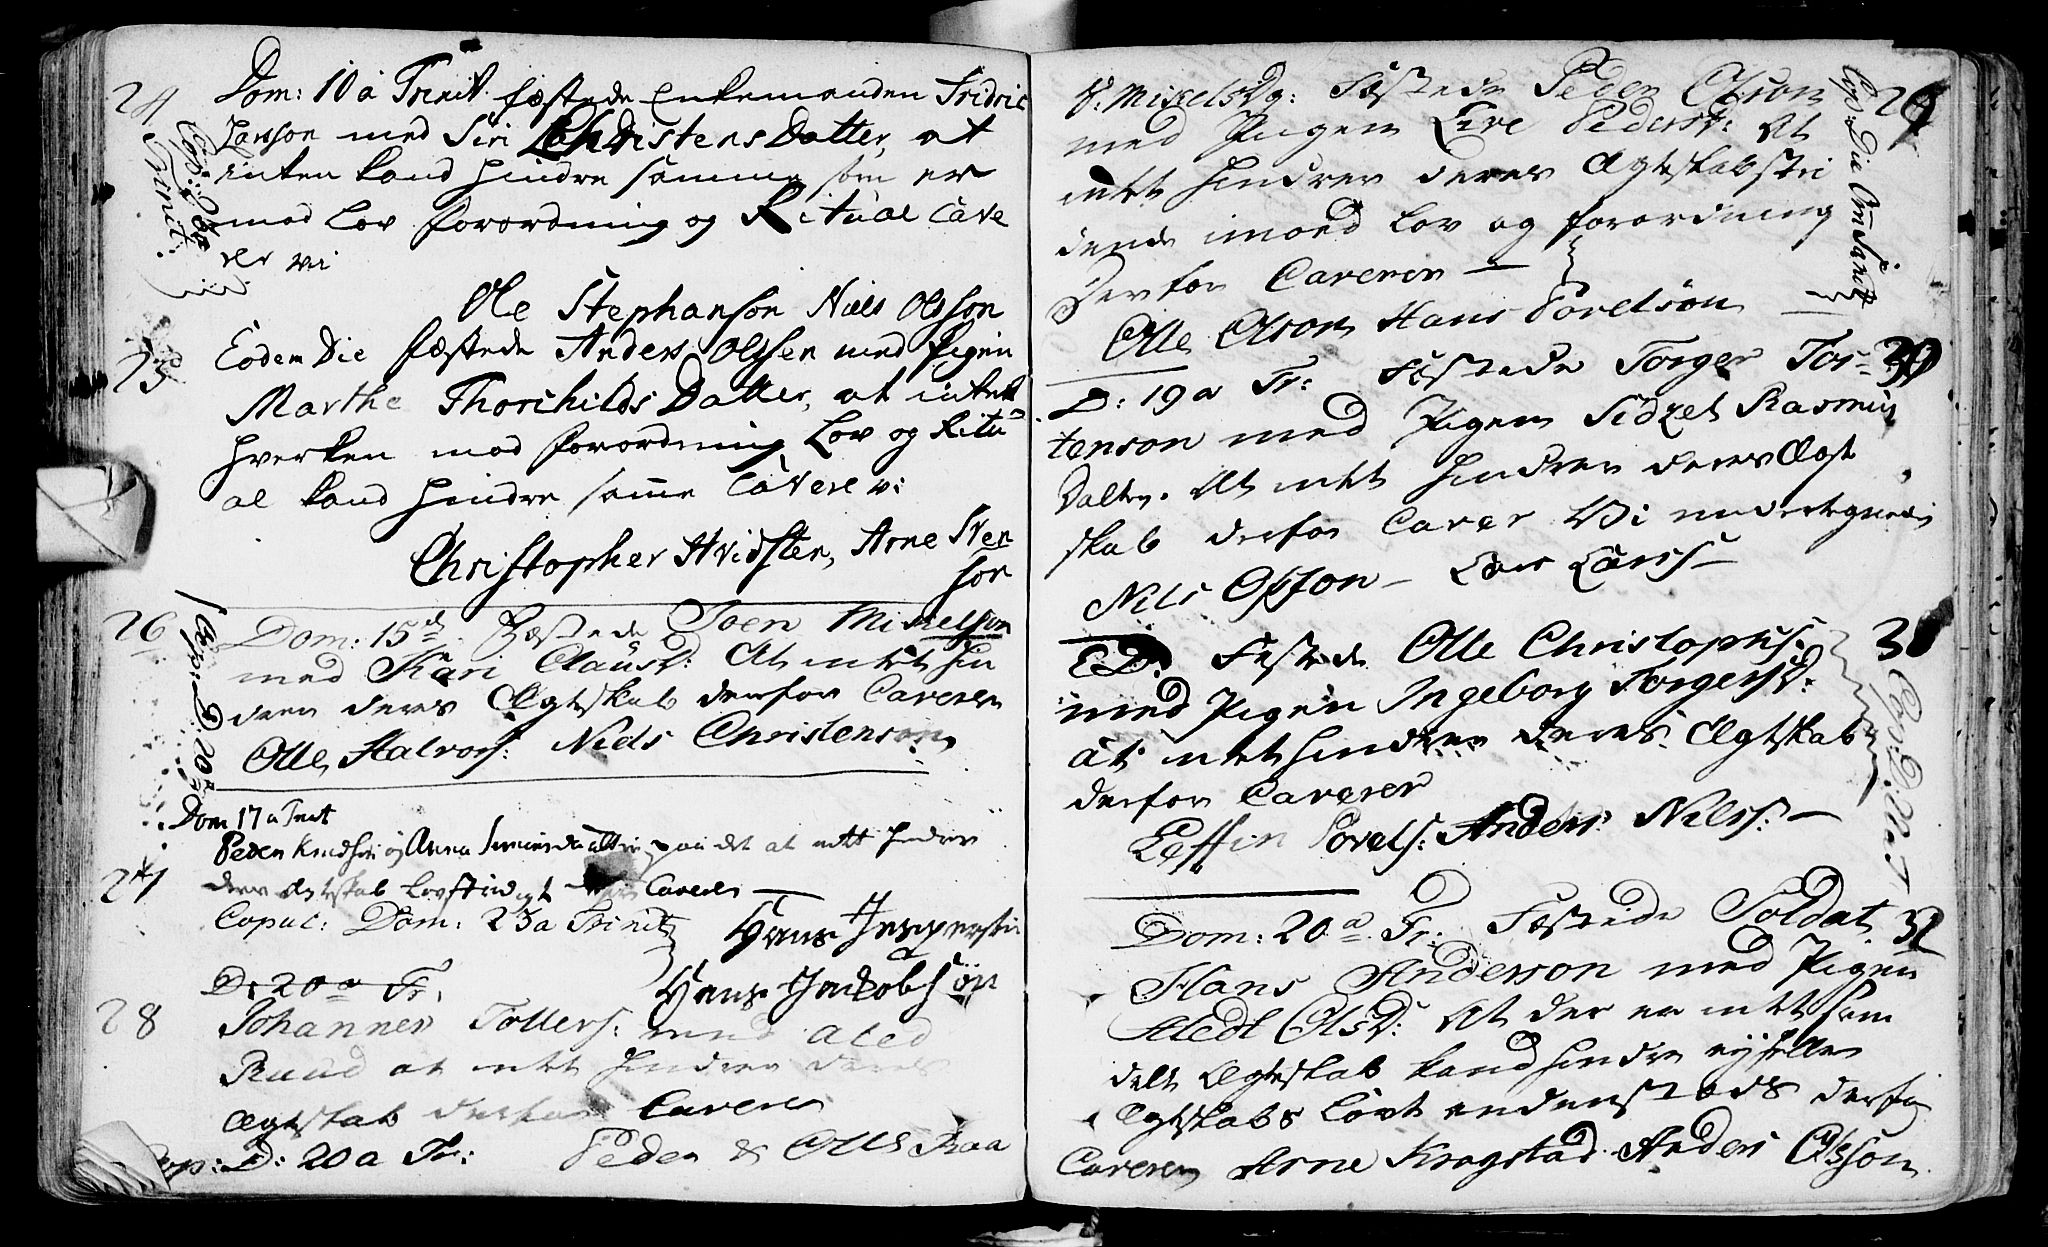 24
Dom: 10 a Trinit. fæstede Enkemanden Fridric
Larsson med Siri ChristensDatter, at
inten kand hindre samme som er
mod Lov forordning og Ritual Cave
rer vi
Cop:
Trinit:
Ole Stephanson Niels Olsson
25
Eodem Die fæstede Anders Olssen med Pigen
Marthe Thorchilds Datter, at intet
hverken mod forordning Lov og Ritu
al kand hindre samme Cavere vi
Christopher Hvidsten, Arne Sven
son
26
Dom: 15 d. Fæstede Joen Mickelson
med Kari Clausd: At intet hin
drer deres Ægteskab derfor Caverer
Olle Halvors: Niels Christenson
Cop: D: 20
Dom 17 a Trnt
27
Peder Knudsen og Anna at intt hindrer
deres Ægteskab Caverer
Copul: Dom: 23 a Trinit
Hans Jespersen
Hans Jackobsøn
D: 20 a Tr.
28
Johannes Tollers: med Aled
Ruud at intet hindrer deres
Ægteskab derfor Caverer
Cop: D: 20 a Tr:
Peder & Olle Raa
29
S: Mikelsdg: Fæstede Peder Olson
med Pigen Live Pedersd: At
intet hindrer deres Ægteskab stri
dende imoed Lov og forordning
Derfor Caverer
Cop: Die Om: Sanct:
Olle Olson Hans Povelsøn
30
D: 19 a Tr: Fæstede Torger Tor-
tenson med Pigen Sidzel Rasmus
Datter. At intet hindrer deres Ægte
skab derfor Caver Vi undertegnede
Nils Olsson - Lars Larss-
31
E D. Festede Olle Christophs:
med Pigen Ingeborg TorgersD:
at intet hindrer deres Ægtskab
derfor Caverer
Cop: D:
Povels: Anders Nilss:
32
Dom: 20 a Tr: Fæstede Soldat
Hans Anderson med Pigen
OlsD: At der er intet som
delt Ægteskab kand hindre ey heller
Ægteskabs Løvt andensteds derfor
Caverer Arne Kragstad Anders Olsson